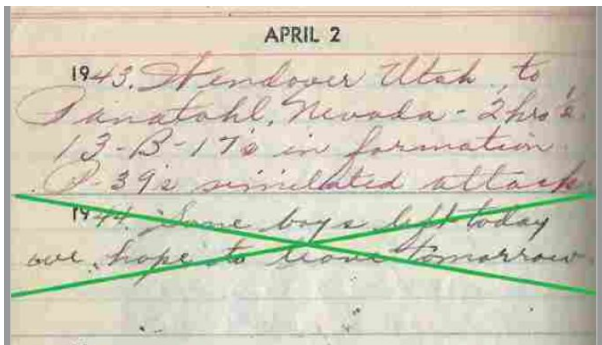 APRIL 2
1943. Wendover Utah, to
Panatohl, Nevada - 2 hrs &
13-B-17's in formation.
P-39's similated attack.
1944. Some boys left today
we hope to leave tomorrow.